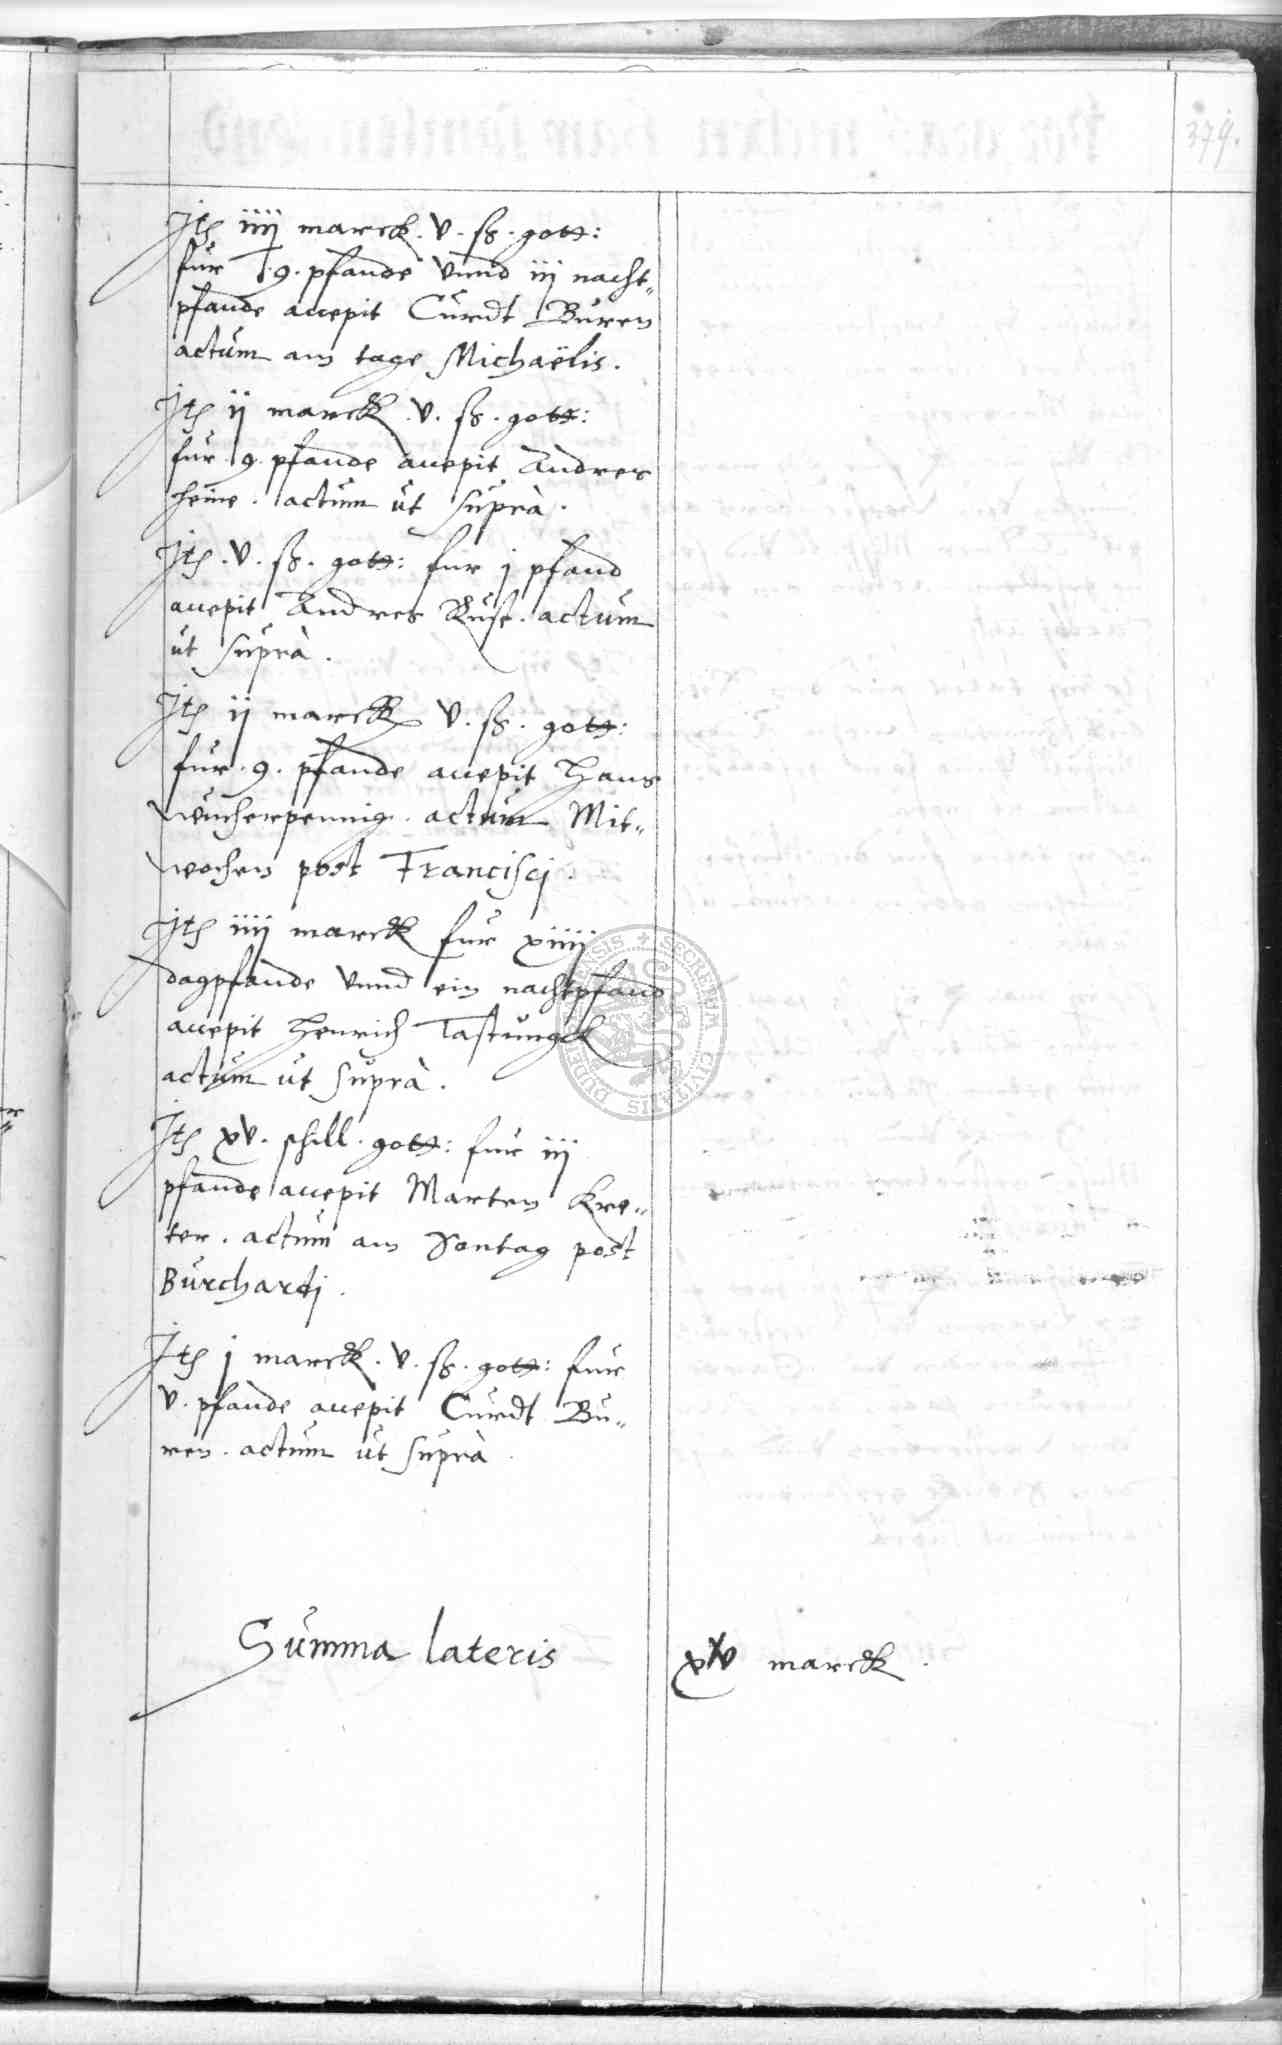 379.
Itē iiij marck. v. ß. gott:
fur 9. pfande vnnd iij nacht„
pfande accepit Curdt Buren
actum am tage Michaëlis.
Itē ij marck. v. ß. gott:
fur. 9. pfande accepit Andres
Heine. actum ut suprà.
Itē. v. ß. gott: fur j pfand
accepit Andres Rust. actum
ut suprà.
Itē ij marck v. ß. gott:
fur. 9. pfande accepit Hans
Wucherpennig. actum Mit„
wochen post Francisci.
Itē iiij marck fur xiiij
dagpfande vnnd ein nachtpfand
accepit Henrich Tastungck
actum ut suprà.
Itē xv. schill. gott: fur iij
pfande accepit Marten Kre„
ter. actum am Sontag post
Burchardi.
Itē j marck. v. ß. gott: fur
v. pfande accepit Curdt Bu„
ren. actum ut suprà
Summa lateris xv marck.
SECRETUM CIVITATIS